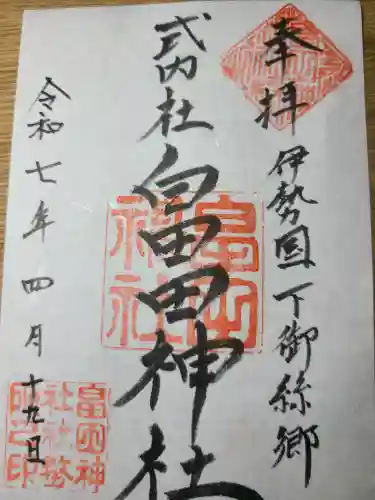 奉拝 伊勢國下御絲郷
式内社 畠田神社
令和七年四月十九日
畠田神社
畠田神社社務所之印